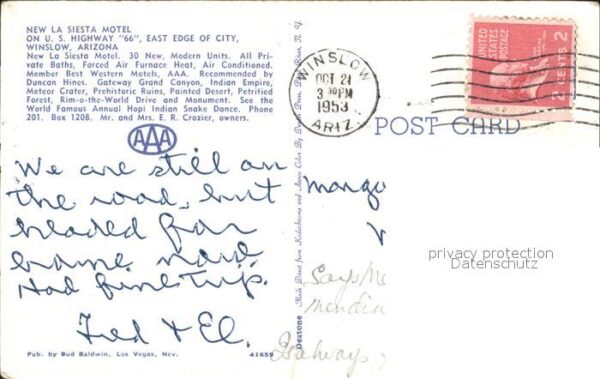 NEW LA SIESTA MOTEL
ON U. S. HIGHWAY "66", EAST EDGE OF CITY,
WINSLOW, ARIZONA
New La Siesta Motel. 30 New, Modern Units. All Pri-
vate Baths, Forced Air Furnace Heat, Air Conditioned.
Member Best Western Motels, AAA. Recommended by
Duncan Hines. Gateway Grand Canyon, Indian Empire,
Meteor Crater, Prehistoric Ruins, Painted Desert, Petrified
Forest, Rim-o-the-World Drive and Monument. See the
World Famous Annual Hopi Indian Snake Dance. Phone
201. Box 1208. Mr. and Mrs. E. R. Crozier, owners.
AAA
We are still on
the road, but
headed for
home now.
Had fine trip.
Fred & El.
Pub. by Bud Baldwin, Las Vegas, Nev.
41659
Dextone
Made Direct from Kodachrome and Ansco Color
WINSLOW
OCT 21
3 30 PM
1953
ARIZ.
UNITED STATES POSTAGE
2 CENTS 2
POST CARD
privacy protection
Datenschutz
Says